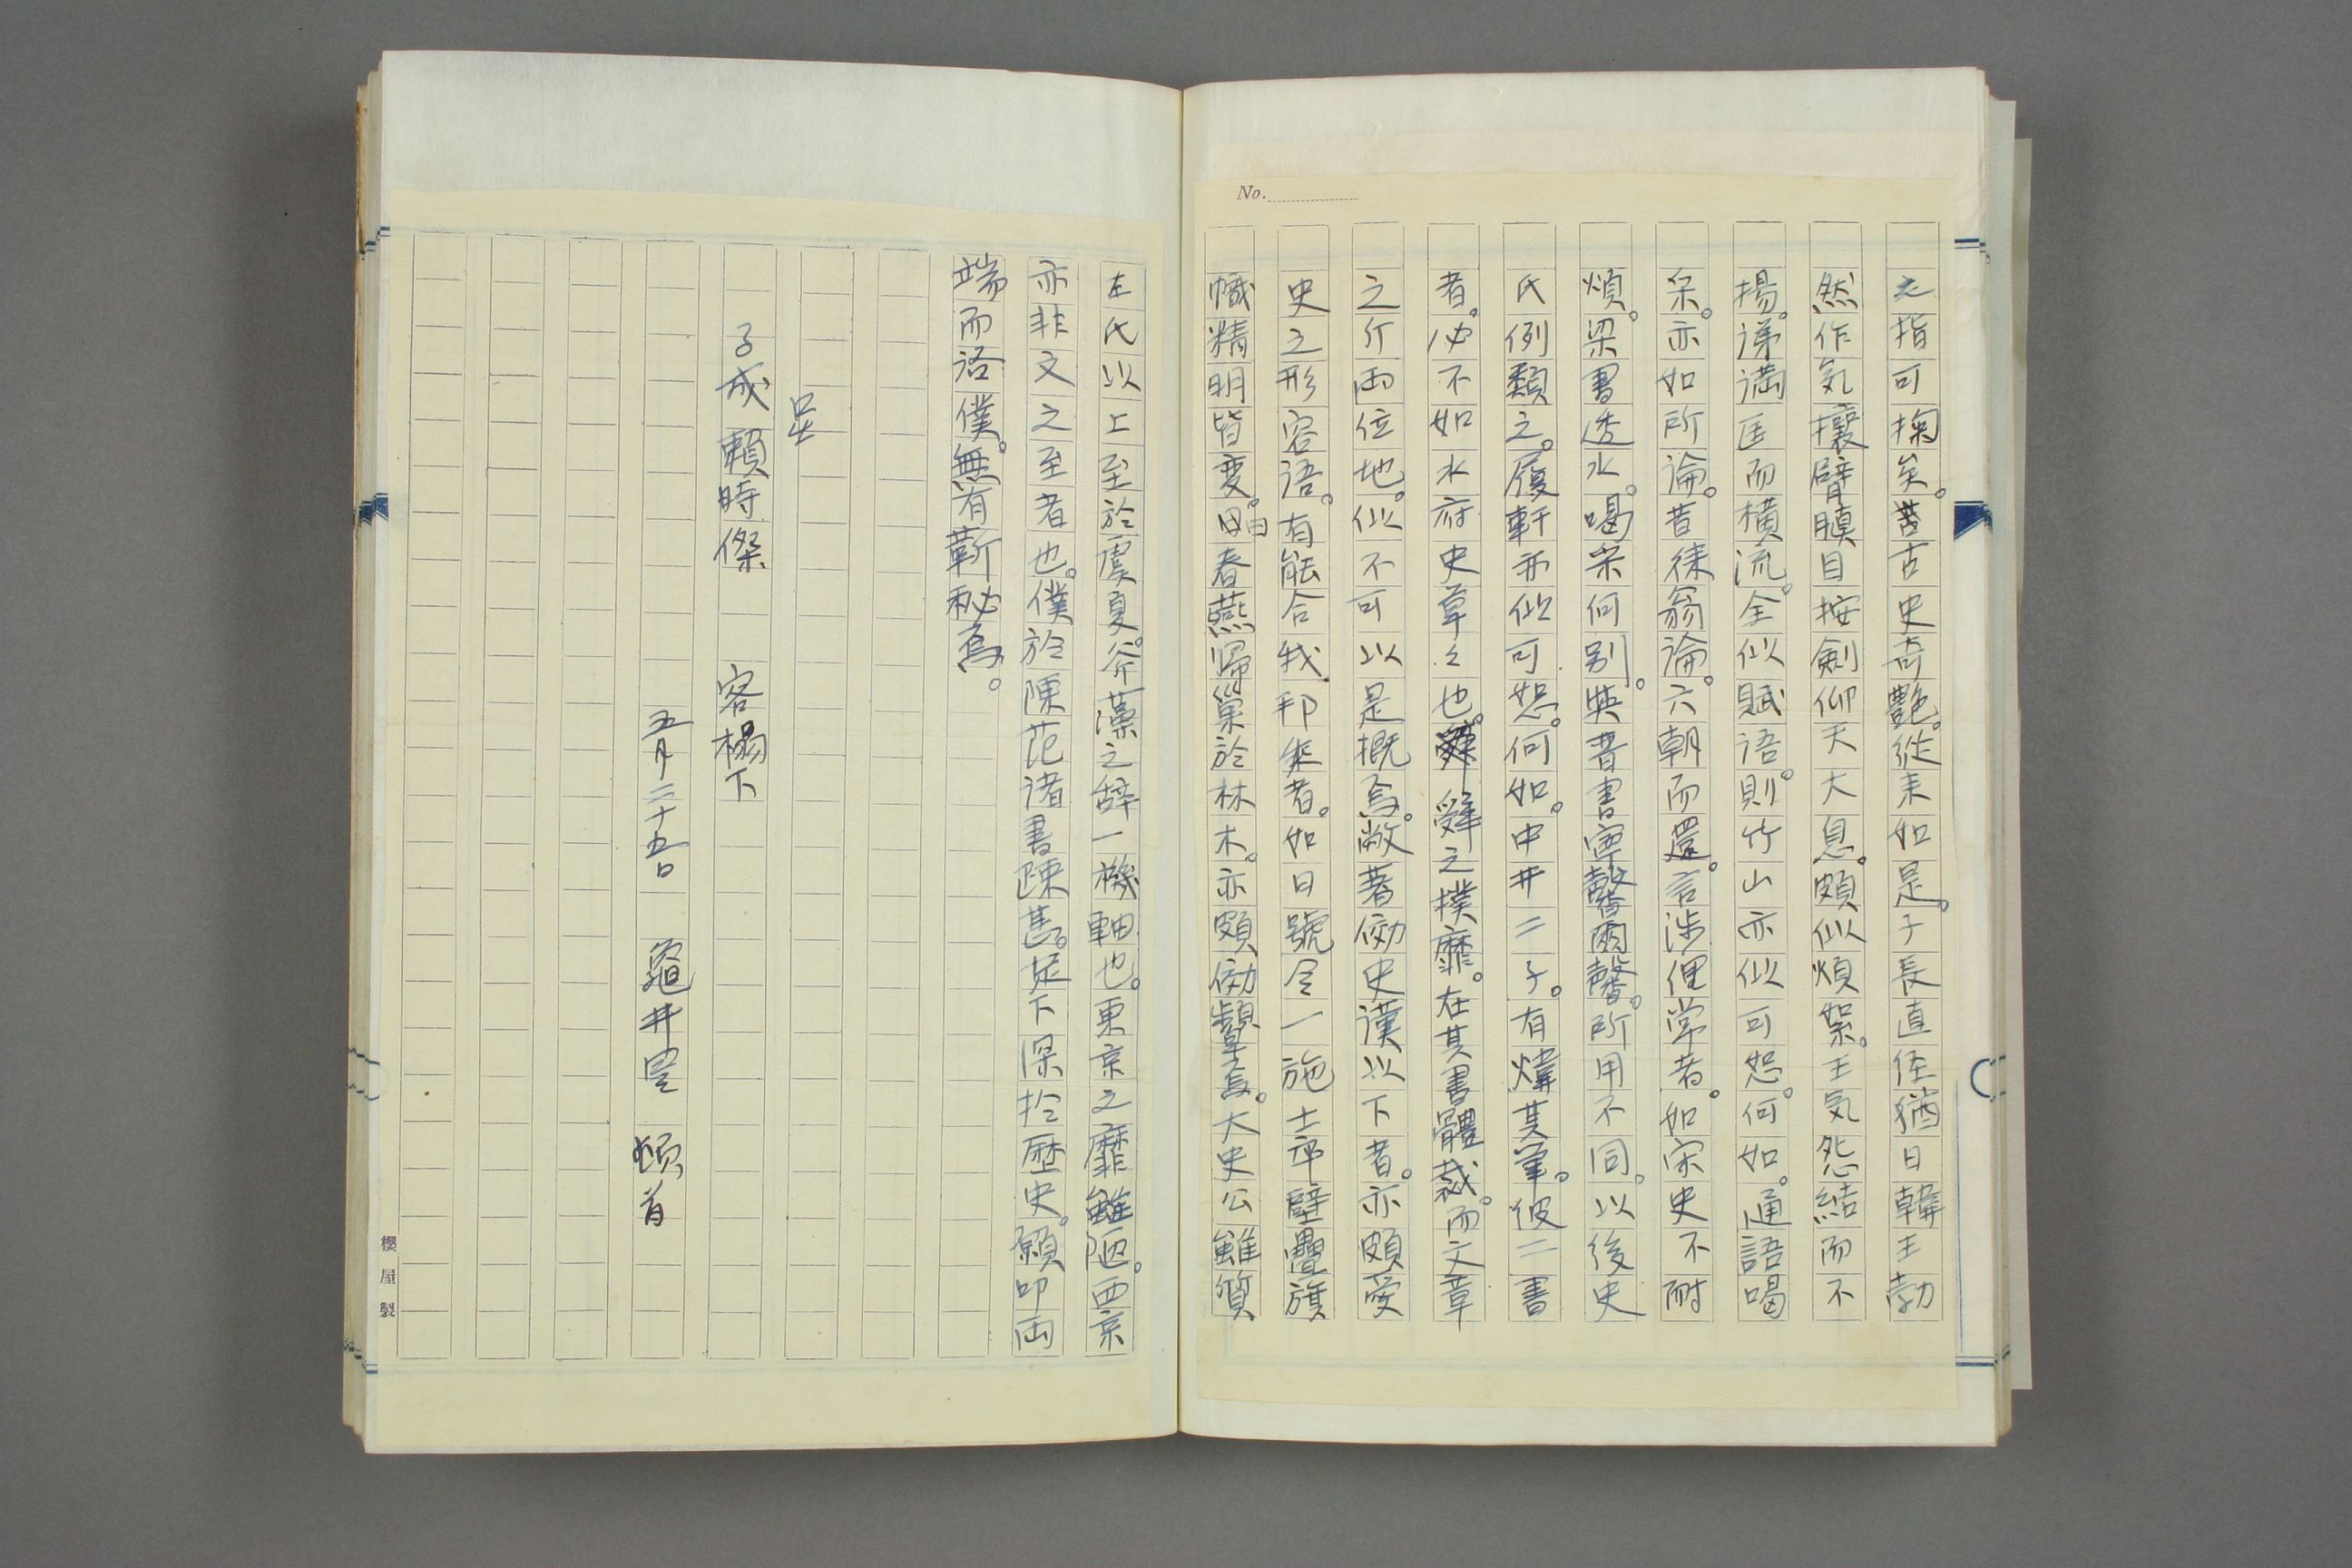 No.
之指可掬矣。昔古史奇艶。從来如是。子長直径猶曰韓王勃
然作気攘臂瞋目按剣仰天大息。頗似煩絮。王気怨結而不
揚。涕満匡而横流。全似賦語。則竹山亦似可恕。何如。通語喝
采。亦如所論。昔徠翁論。六朝而還。言渉俚常者。如宋史不耐
煩。梁書透水。喝采何別。與晋書寧馨爾馨。所用不同。以後史
氏例類之。履軒亦似可恕。何如。中井二子。有煒其筆。彼二書
者。必不如水府史草々也。辞之撲靡。在其書體裁。而文章
之斤両位地。似不可以是概焉。敞著倣史漢以下者。亦頗愛
史之形容語。有能合我邦楽者。如曰號令一施士卒壁疊旗
幟精明皆変。曰春燕帰巣於林木。亦頗倣顰焉。大史公雖質
左氏以上至於虞夏。斧藻之辞一機軸也。東京之靡雖陋。西京
亦非文之至者也。僕於陳范諸書踈甚。足下深於歴史。願叩両
端而語僕。無有蘄秘焉。
呈
子成 頼時傑 客榻下
五月二十五日 龜井昱 頓首
櫻屋製